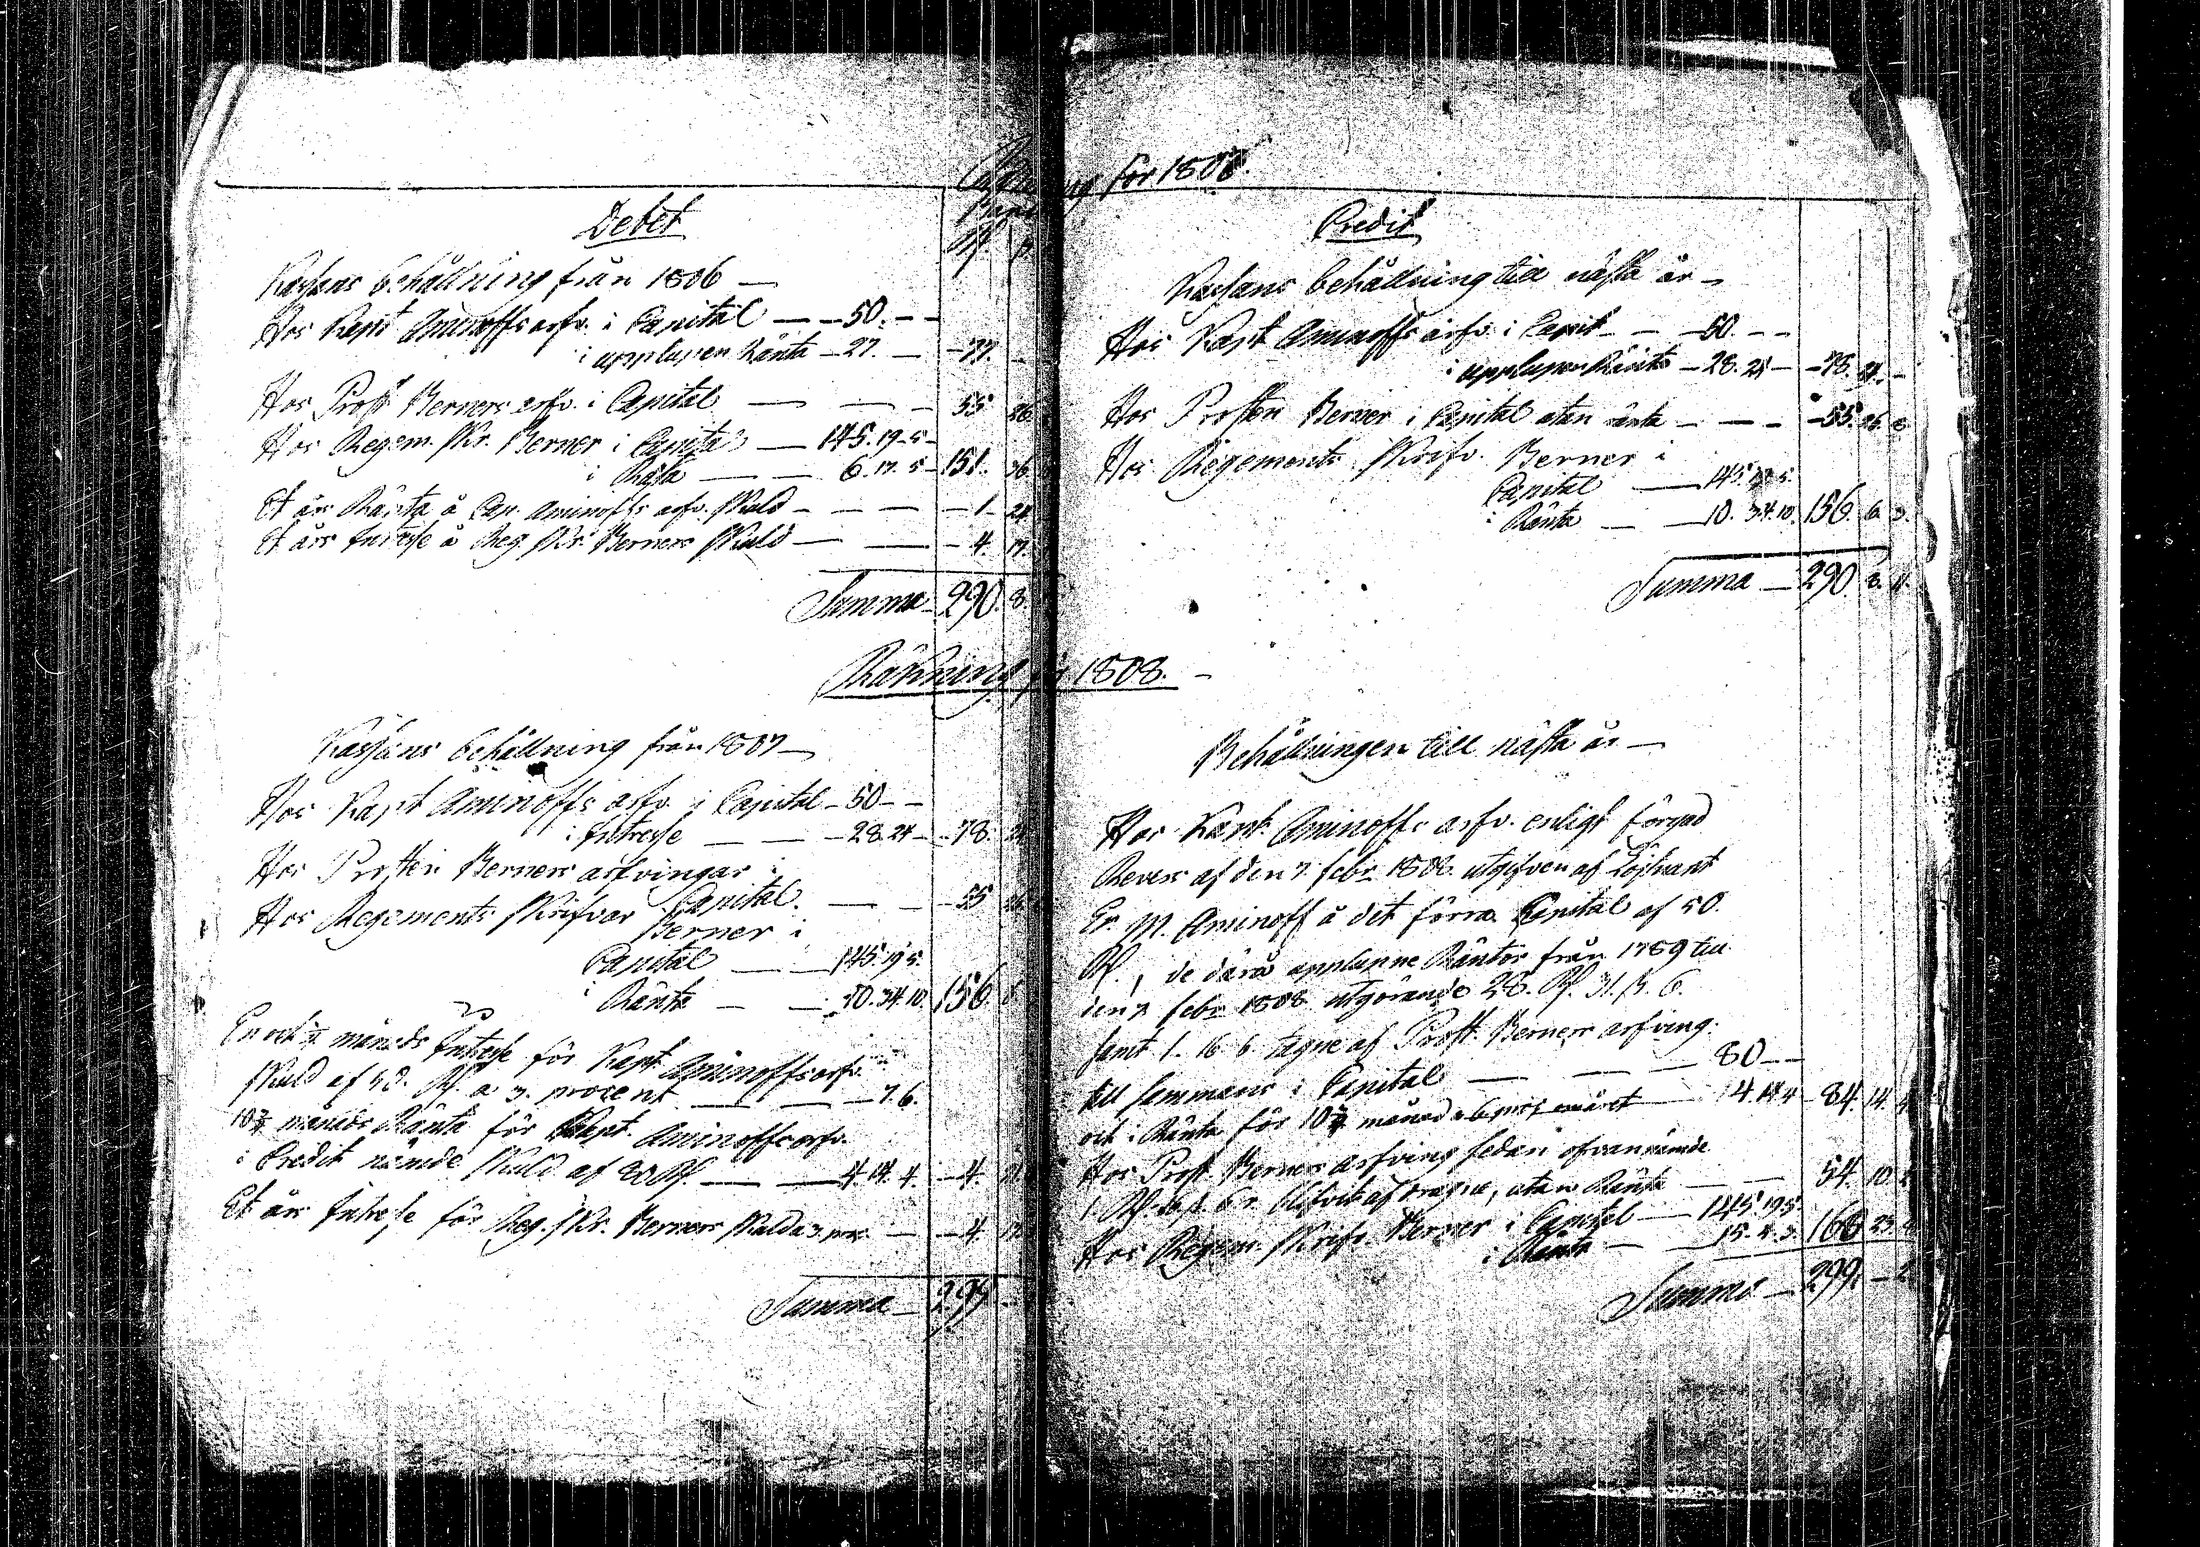 för 1807.
Debet
Kassans behållning från 1806 —
Hos Kapt Aminoffs arfv. i Capital — — 50. — —
i upplupen Ränta — 27. — — 77. —
Hos Prost Berners arfv. i Capital — — — 55 26
Hos Regem. Skr. Berner i Capital — 145. 19. 5 —
i Ränta — — 6. 17. 5 — 151. 36
Et års Ränta å Cap. Aminoffs arfv. Skuld — — — — 1 — 24
Et års Intresse å Reg. Skr. Berners Skuld — — — 4. 17.
Summa — 290. 8.
Räkning för 1808. —
Kassans behållning från 1807 —
Hos Kapt Aminoffs arfv. i Capital — 50 — —
i Intresse — — — 28. 24 — — 78. 24
Hos Prosten Berners arfvingar i
Capital. — — — 55 26
Hos Regements Skrifvar Berner i
Capital — — 145. 19. 5.
i Ränta — — 10. 34. 10. 156. 6.
En och månads Intresse för Kapt. Aminoffs arfv.
Skuld af 50. Rf. a 3. procent — — — 7. 6.
10 månads Ränta för Kapt. Aminoffs arfv.
i Credit nämde Skuld af 80 Rf. — — 4. 14. 4. — 4.
Et års Intresse för Reg. Skr. Berners Skuld a 3. proc. — — 4. 17
Summa — 299 —
Credit
Kassans behållning till nästa år —
Hos Kapt Aminoffs arfv. i Capit — — 50. — —
i upplupen Ränta — 28. 24 — — 78. 24. —
Hos Prosten Berner i Capital utan ränta — — — — 55. 26. 8
Hos Regements Skrifv. Berner i
Capital — 145. 19. 5.
i Ränta — — 10. 34. 10. 156. 6. 3.
Summa — 290 8. 11.
Behållningen till nästa år —
Hos Kapt. Aminoffs arfv. enligt förnyad
Revers af den 7 febr. 1808. utgifven af Löjtnant
Er. M. Aminoff å det förra Capital af 50.
Rf., de därå upplupne Räntor från 1789 till
den 7 febr 1808 utgörande 28. Rf. 31. ß. 6.
samt 1. 16 6 tagne af Prost. Berners arfving:
till sammans i Capital — — — 80 — —
och i Ränta för 10 månad a 6 proc — 4. 14. 4 — 84. 14. 4
Hos Prost. Berners arfving sedan ofvannämde
1 Rf. 16 ß. 6 r. blifvit afdragne, utan Ränta — — 54. 10. 2
Hos Regem. Skrifv. Berner i Capital — 145. 19. 5.
i Ränta — — 15. 4. 3. 160 23. 8
Summa — 299. — 2